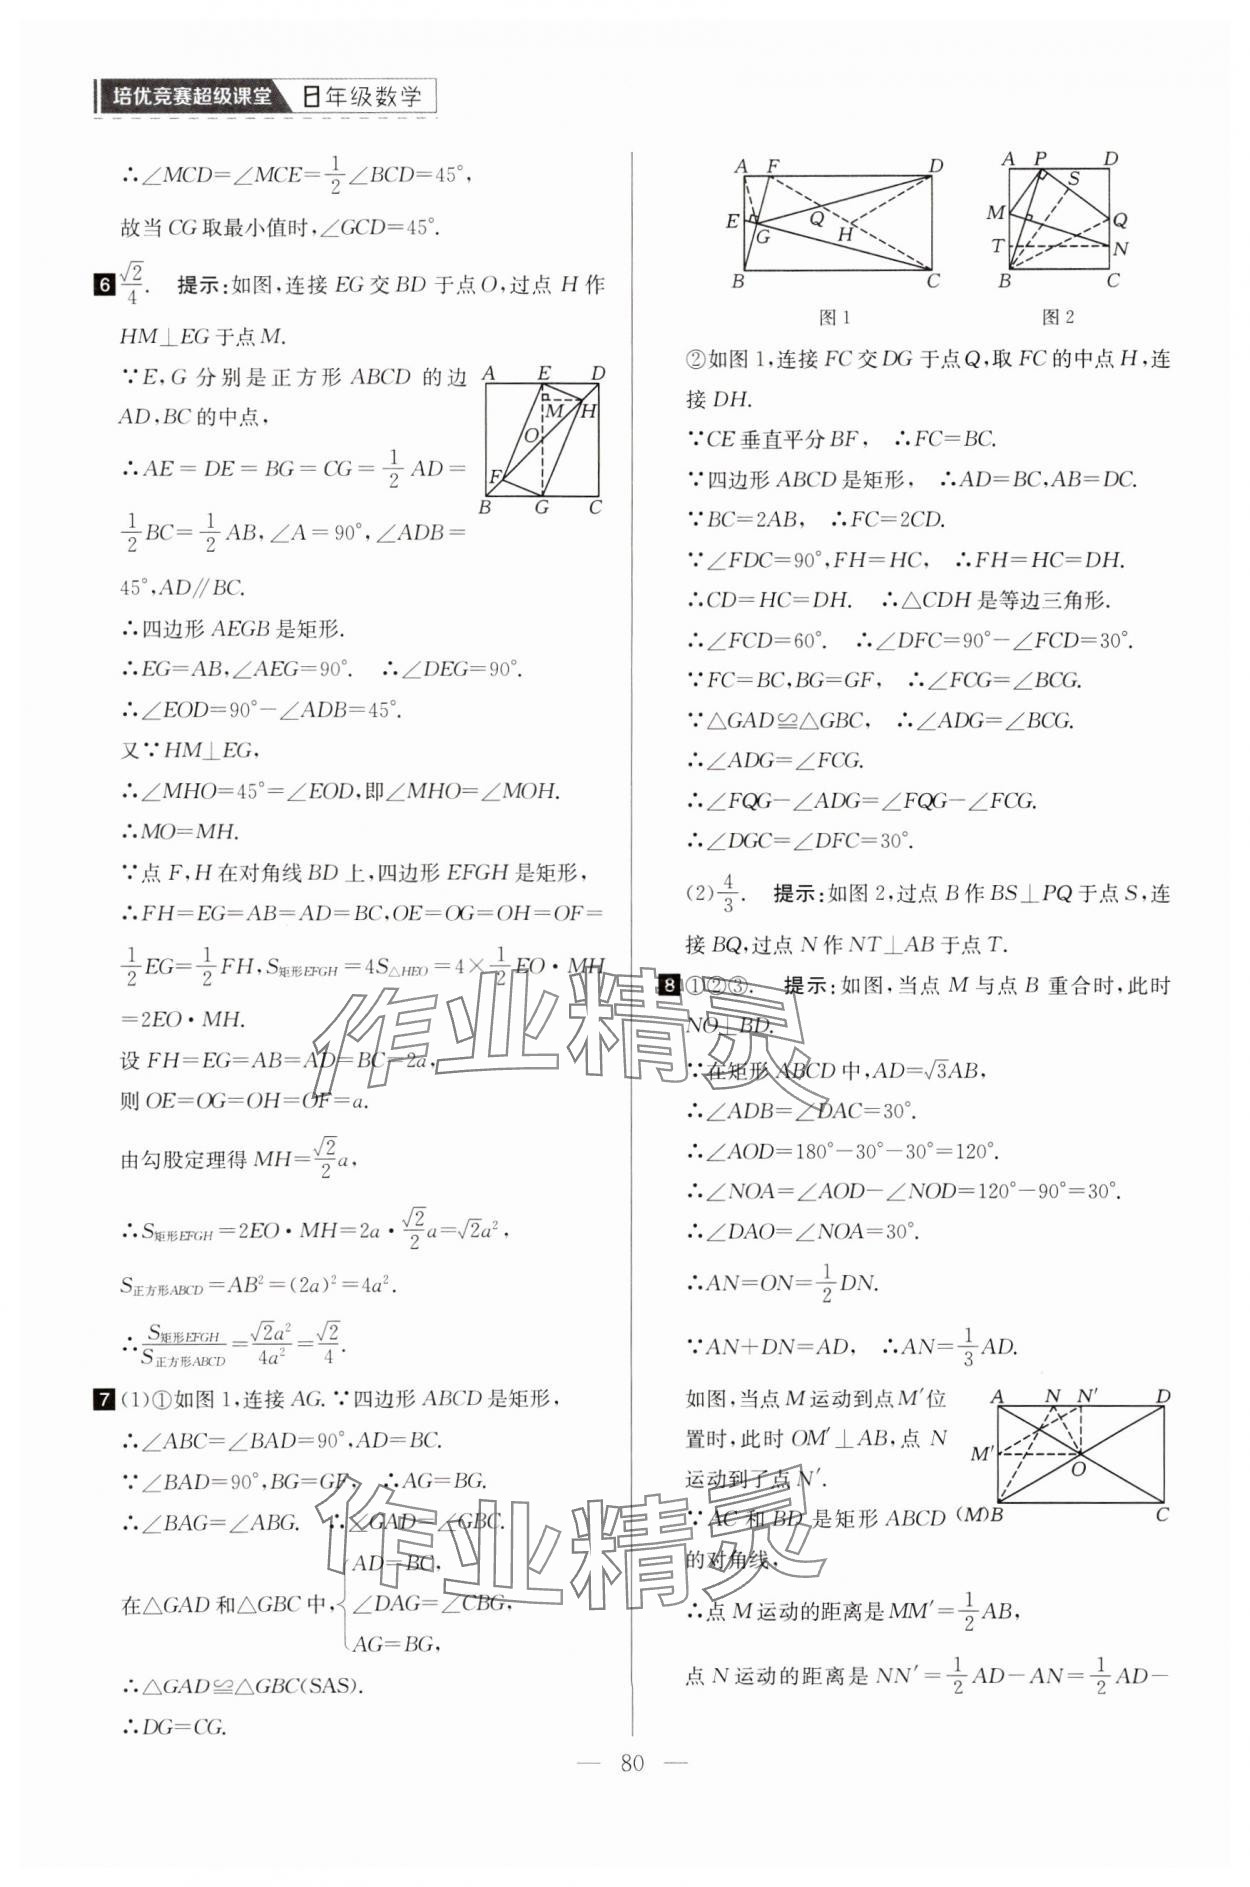 培优竞赛超级课堂 8年级数学
∴∠MCD=∠MCE=1/2∠BCD=45°,
故当CG取最小值时,∠GCD=45°.
6 √2/4. 提示:如图,连接EG交BD于点O,过点H作
HM⊥EG于点M.
∵E,G分别是正方形ABCD的边
AD,BC的中点,
∴AE=DE=BG=CG=1/2 AD=
1/2 BC=1/2 AB,∠A=90°,∠ADB=
45°,AD∥BC.
∴四边形AEGB是矩形.
∴EG=AB,∠AEG=90°. ∴∠DEG=90°.
∴∠EOD=90°-∠ADB=45°.
又∵HM⊥EG,
∴∠MHO=45°=∠EOD,即∠MHO=∠MOH.
∴MO=MH.
∵点F,H在对角线BD上,四边形EFGH是矩形,
∴FH=EG=AB=AD=BC,OE=OG=OH=OF=
1/2 EG=1/2 FH,S矩形EFGH=4S△HEO=4×1/2 EO·MH
=2EO·MH.
设FH=EG=AB=AD=BC=2a,
则OE=OG=OH=OF=a.
由勾股定理得MH=√2/2 a,
∴S矩形EFGH=2EO·MH=2a·√2/2 a=√2a²,
S正方形ABCD=AB²=(2a)²=4a².
∴S矩形EFGH/S正方形ABCD=√2a²/4a²=√2/4.
7 (1)①如图1,连接AG.∵四边形ABCD是矩形,
∴∠ABC=∠BAD=90°,AD=BC.
∵∠BAD=90°,BG=GF, ∴AG=BG.
∴∠BAG=∠ABG. ∴∠GAD=∠GBC.
在△GAD和△GBC中,{AD=BC,
∠DAG=∠CBG,
AG=BG,
∴△GAD≌△GBC(SAS).
∴DG=CG.
A E D
M H
O
F
B G C
A F D
E G Q H
B C
图1
A P D
S
M Q
T N
B C
图2
②如图1,连接FC交DG于点Q,取FC的中点H,连
接DH.
∵CE垂直平分BF, ∴FC=BC.
∵四边形ABCD是矩形, ∴AD=BC,AB=DC.
∵BC=2AB, ∴FC=2CD.
∵∠FDC=90°,FH=HC, ∴FH=HC=DH.
∴CD=HC=DH. ∴△CDH是等边三角形.
∴∠FCD=60°. ∴∠DFC=90°-∠FCD=30°.
∵FC=BC,BG=GF, ∴∠FCG=∠BCG.
∵△GAD≌△GBC, ∴∠ADG=∠BCG.
∴∠ADG=∠FCG.
∴∠FQG-∠ADG=∠FQG-∠FCG.
∴∠DGC=∠DFC=30°.
(2)4/3. 提示:如图2,过点B作BS⊥PQ于点S,连
接BQ,过点N作NT⊥AB于点T.
8 ①②③. 提示:如图,当点M与点B重合时,此时
NO⊥BD.
∵在矩形ABCD中,AD=√3AB,
∴∠ADB=∠DAC=30°.
∴∠AOD=180°-30°-30°=120°.
∴∠NOA=∠AOD-∠NOD=120°-90°=30°.
∴∠DAO=∠NOA=30°.
∴AN=ON=1/2 DN.
∵AN+DN=AD, ∴AN=1/3 AD.
如图,当点M运动到点M′位
置时,此时OM′⊥AB,点N
运动到了点N′.
∵AC和BD是矩形ABCD
的对角线,
∴点M运动的距离是MM′=1/2 AB,
点N运动的距离是NN′=1/2 AD-AN=1/2 AD-
A N N′ D
M′ O
(M)B C
作业精灵
作业精灵
— 80 —